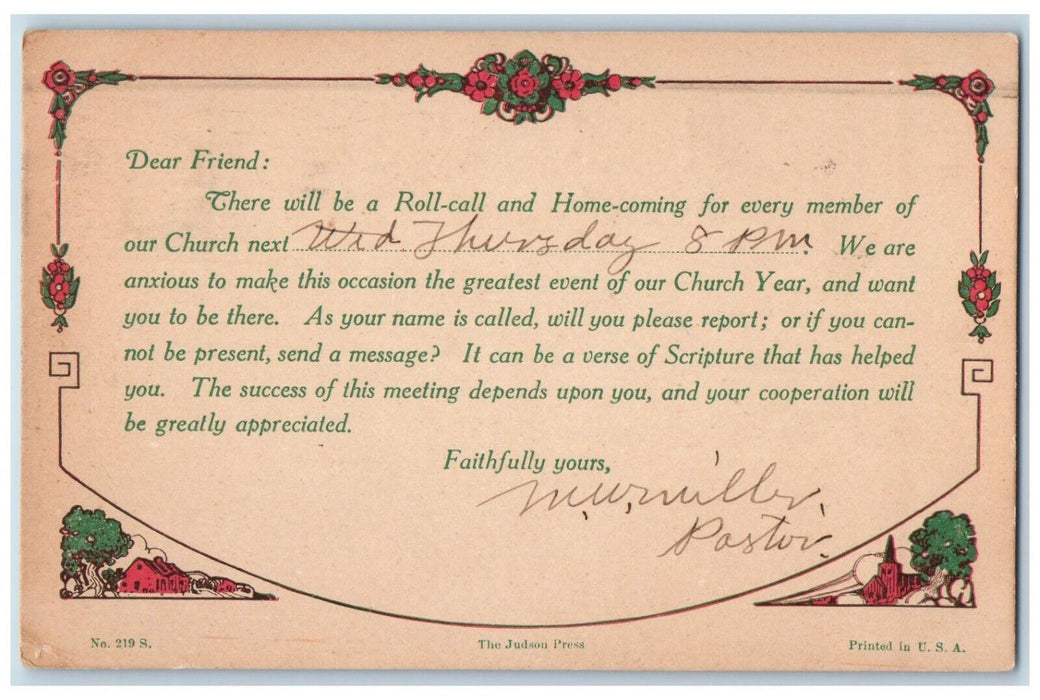 Dear Friend:
There will be a Roll-call and Home-coming for every member of
our Church next Wed. Thursday 8 P.M. We are
anxious to make this occasion the greatest event of our Church Year, and want
you to be there. As your name is called, will you please report; or if you can-
not be present, send a message? It can be a verse of Scripture that has helped
you. The success of this meeting depends upon you, and your cooperation will
be greatly appreciated.
Faithfully yours,
M. W. Miller,
Pastor.
No. 219 S. The Judson Press Printed in U. S. A.